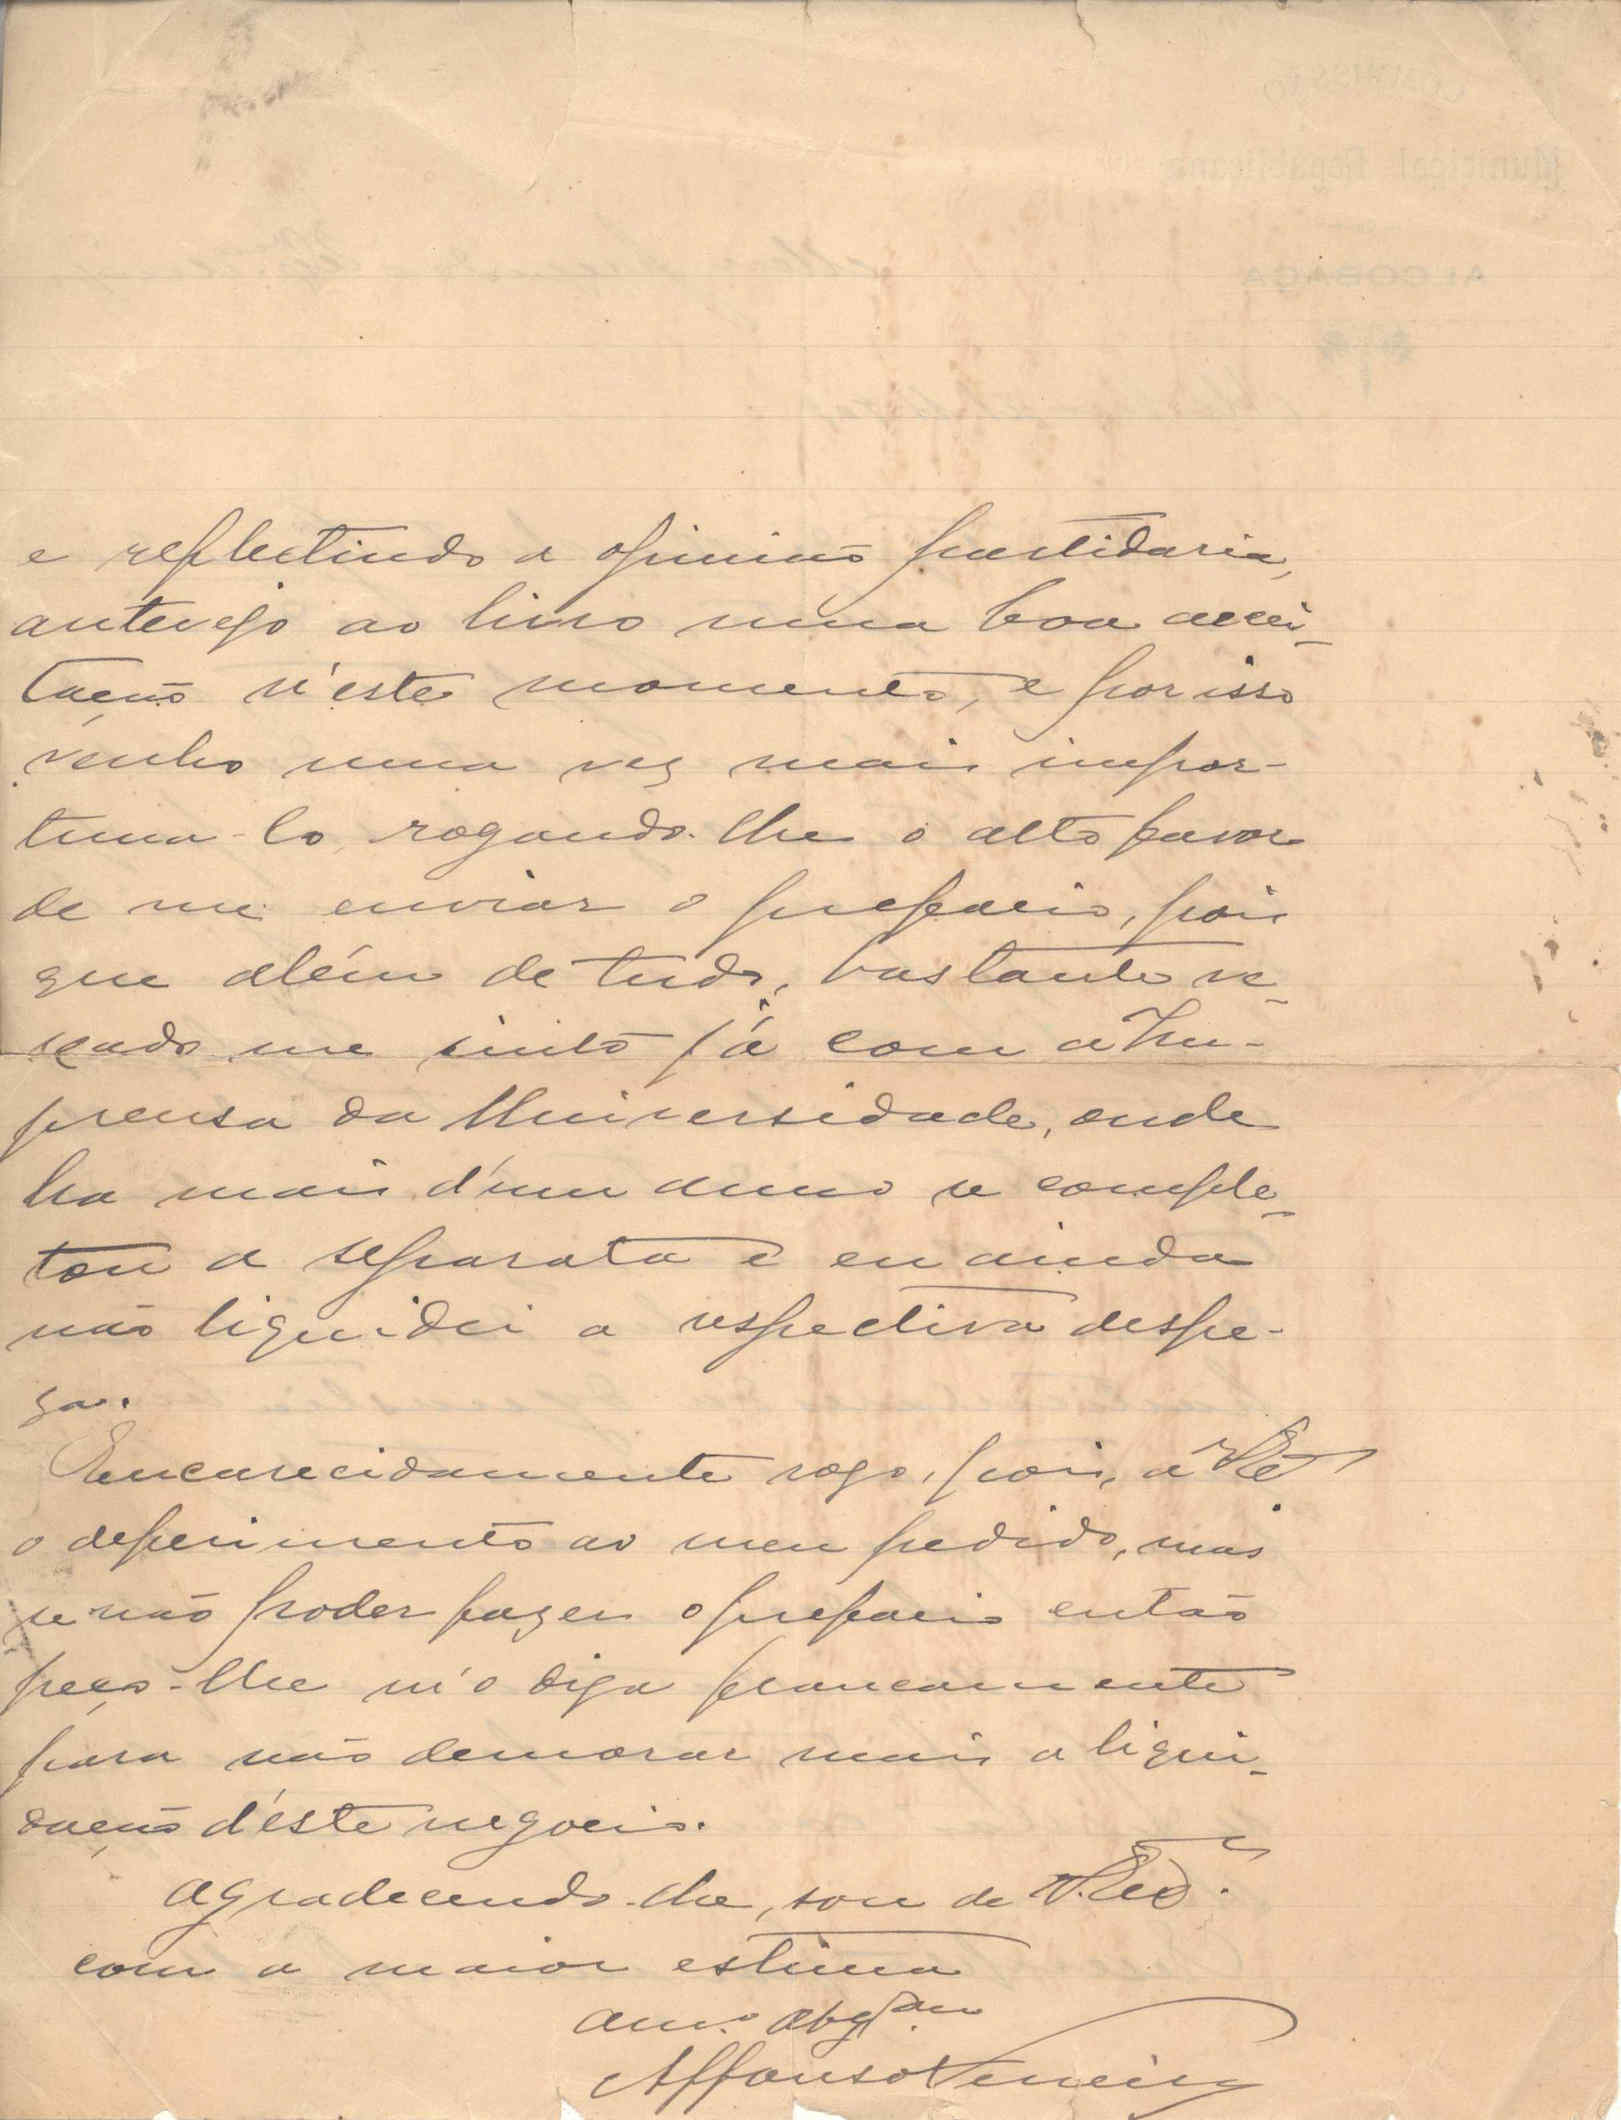 e reflectindo a opinião partidaria,
antevejo ao livro uma boa accei-
tação n'este momento, e por isso
venho uma vez mais impor-
tuna-lo, rogando-lhe o alto favor
de me enviar o prefacio, pois
que além de tudo, bastante ve-
xado me sinto já com a Im-
prensa da Universidade, onde
ha mais d'um anno se comple-
tou a separata e eu ainda
não liquidei a respectiva despe-
za.
Encarecidamente rogo, pois, a V. Ex.ª
o deferimento ao meu pedido, mas
se não poder fazer o prefacio então
peço-lhe m'o diga francamente
para não demorar mais a liqui-
dação d'este negocio.
Agradecendo-lhe, sou de V. Ex.ª
com a maior estima
am.o obg.
Affonso Ferreira
ALCOBAÇA
Municipal Republicana